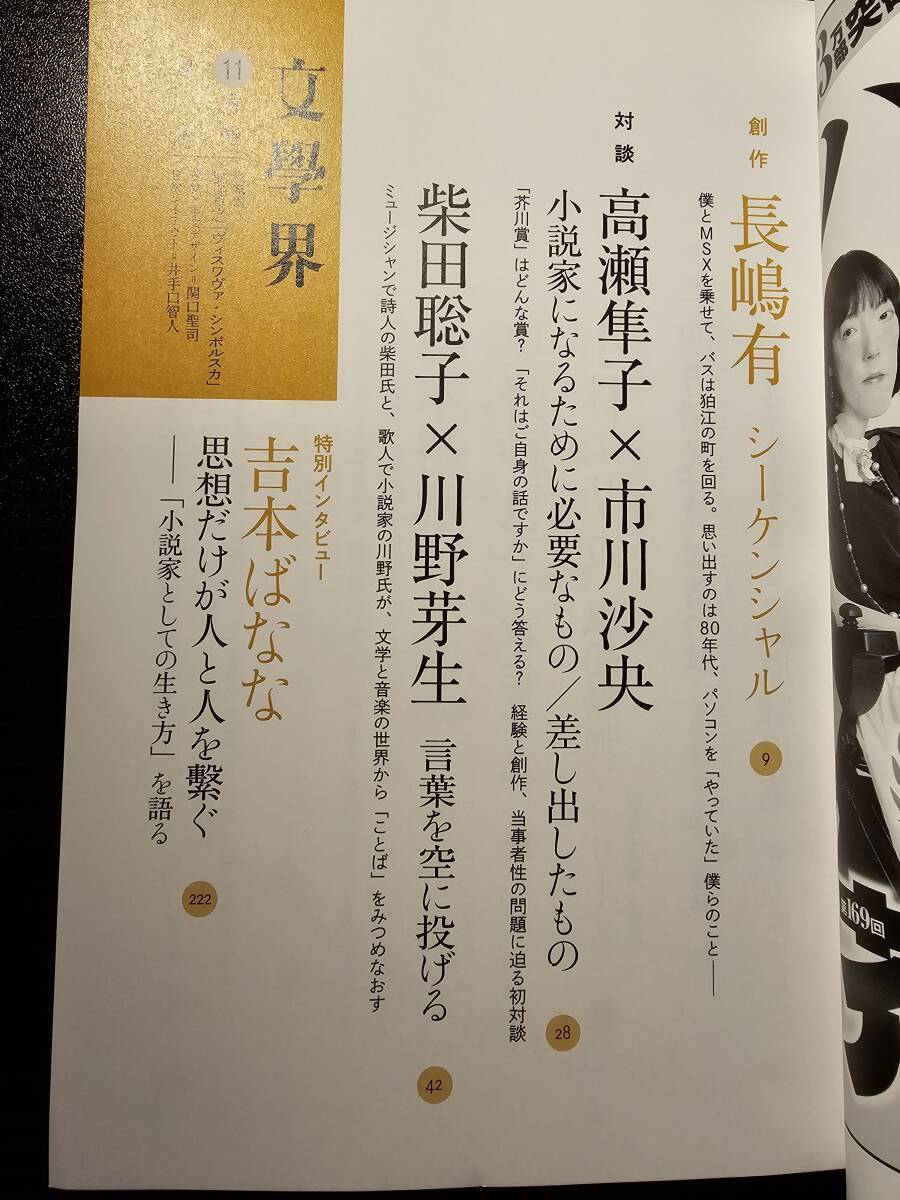 創作
長嶋有 シーケンシャル 9
僕とMSXを乗せて、バスは狛江の町を回る。思い出すのは80年代、パソコンを「やっていた」僕らのこと――
対談
高瀬隼子×市川沙央
小説家になるために必要なもの/差し出したもの 28
「芥川賞」はどんな賞? 「それはご自身の話ですか」にどう答える? 経験と創作、当事者性の問題に迫る初対談
柴田聡子×川野芽生 言葉を空に投げる 42
ミュージシャンで詩人の柴田氏と、歌人で小説家の川野氏が、文学と音楽の世界から「ことば」をみつめなおす
特別インタビュー
吉本ばなな
思想だけが人と人を繫ぐ 222
――「小説家としての生き方」を語る
文學界
11
「ヴィスワヴァ・シンボルスカ」
デザイン=関口聖司
井手口智人
万部突
169回